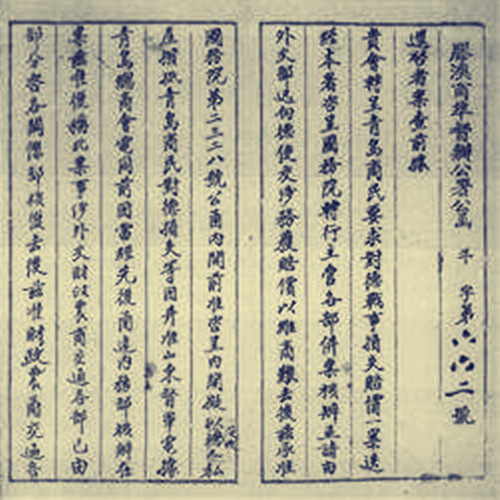 膠澳商埠督辦公署公函 字第六六二號
逕啟者案查前據
貴會轉呈青島商民要求對德戰事損失賠償一案迭
經本署咨呈國務院轉行主管各部併案核辦並請由
外交部迅向德使交涉務獲賠償以維商艱去後茲承准
國務院第二三二八號公函內開前准咨呈內開擬
在 據青島商民對德損失等因奔准山東督軍電據
青島總商會電同前因當經先後函達內務部核辦在
案茲准復稱此案事涉外交財政農商交通各部已由
部分咨各關係部核復去後茲准財政農商交通各